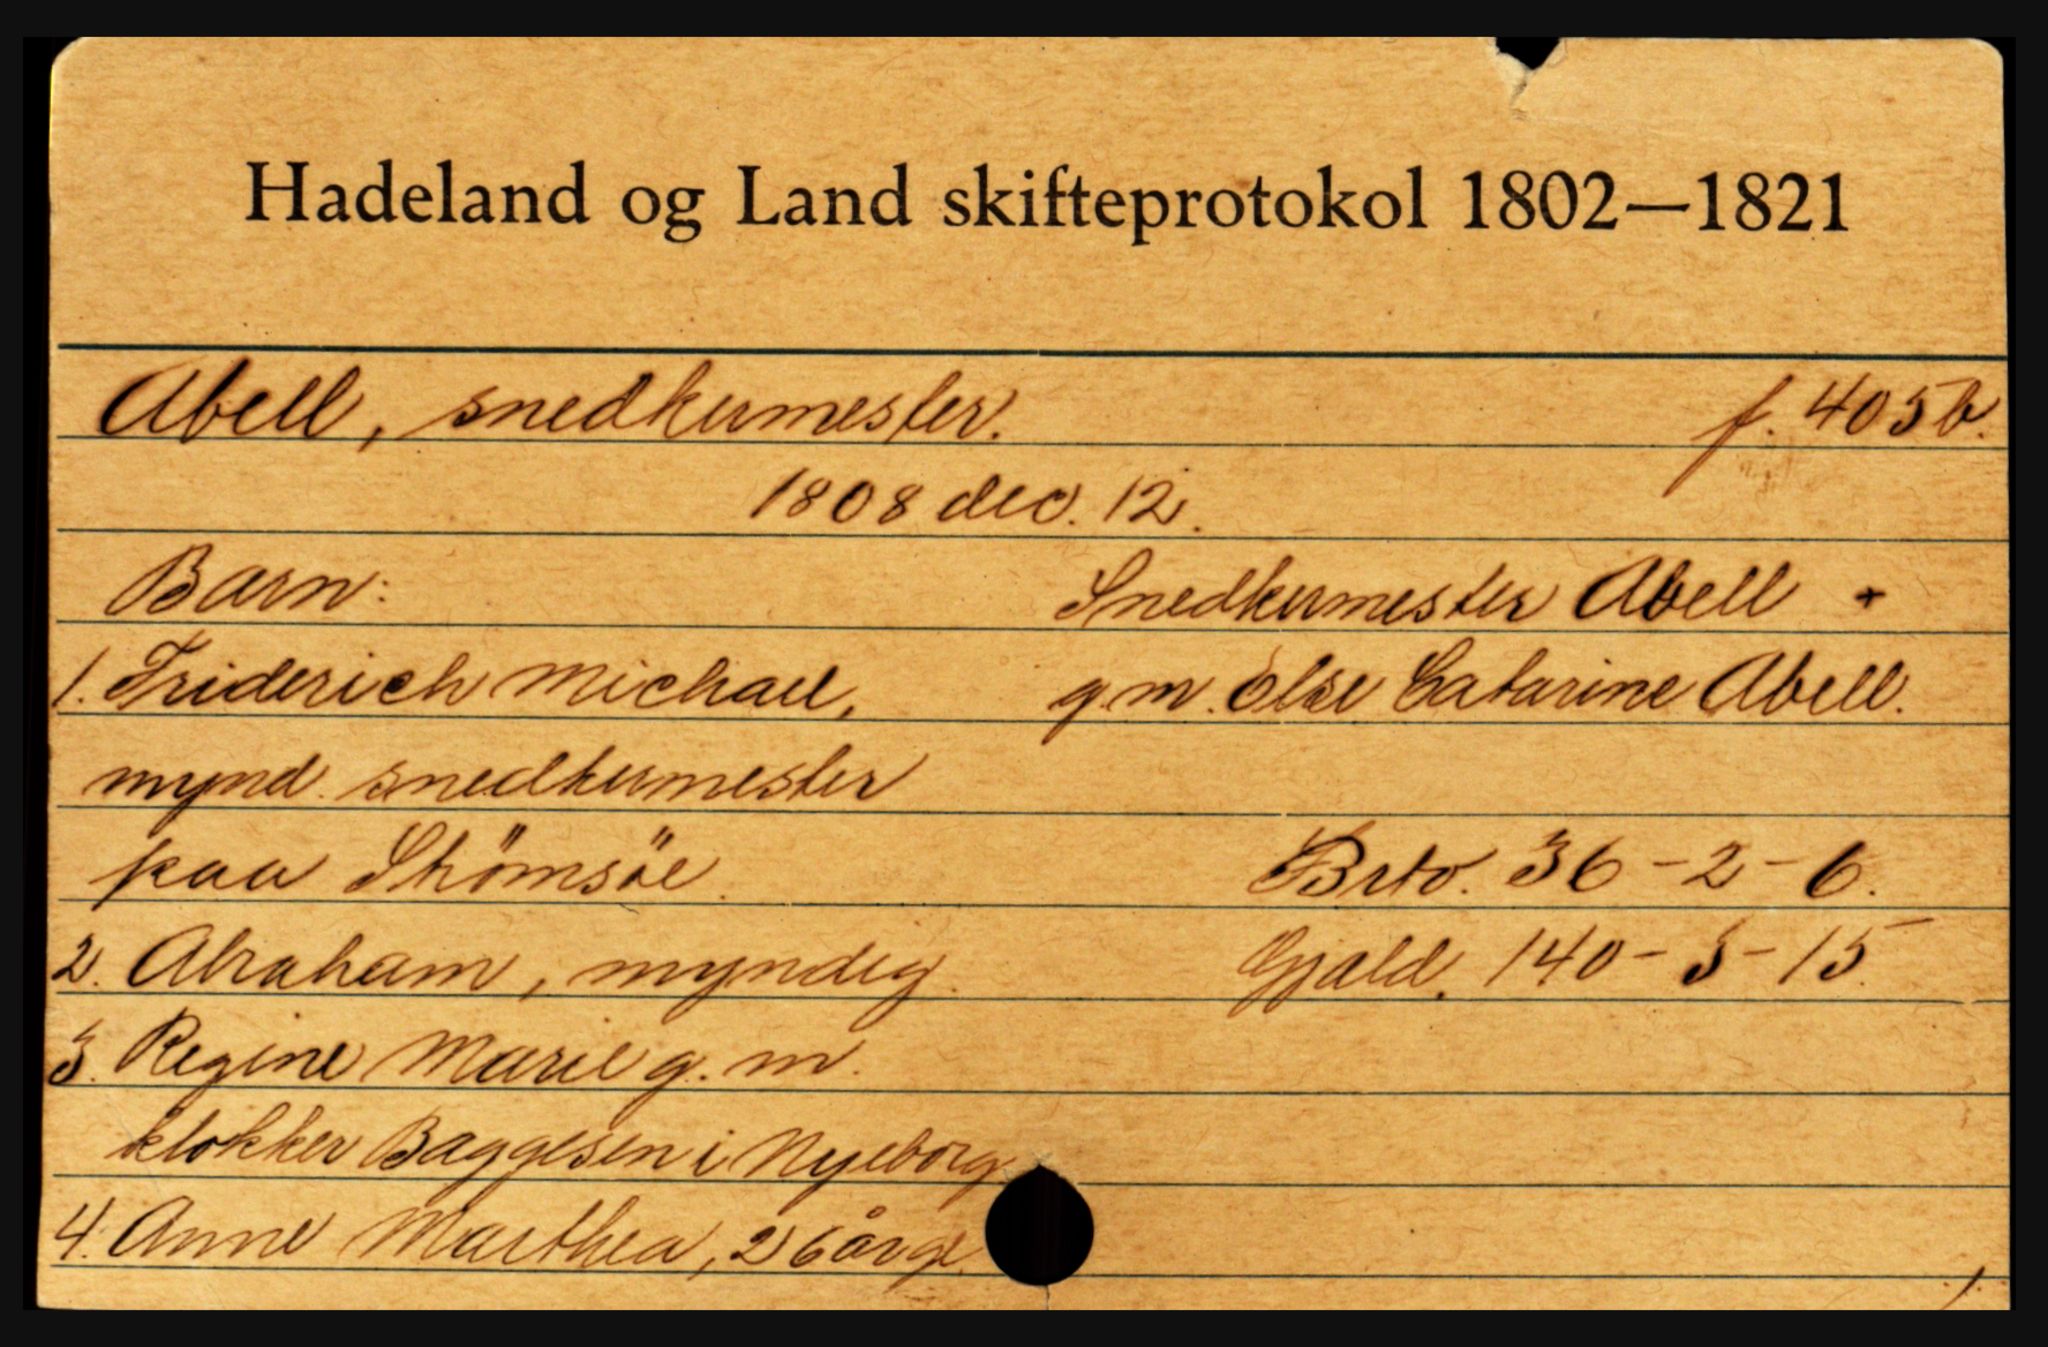 Hadeland og Land skifteprotokol 1802—1821
Abell, snedkermester. f. 405b.
1808 dec. 12.
Barn: Snedkermester Abell +
1. Friderich Michael, g.m. Else Catarine Abell.
mynd. snedkermester
paa Strömsöe. Brto. 36-2-6.
2. Abraham, myndig. Gjæld. 140-3-15.
3. Regine Marie g. m.
klokker Baggesen i Nyeborg
4. Anne Marthea, 26 årg.